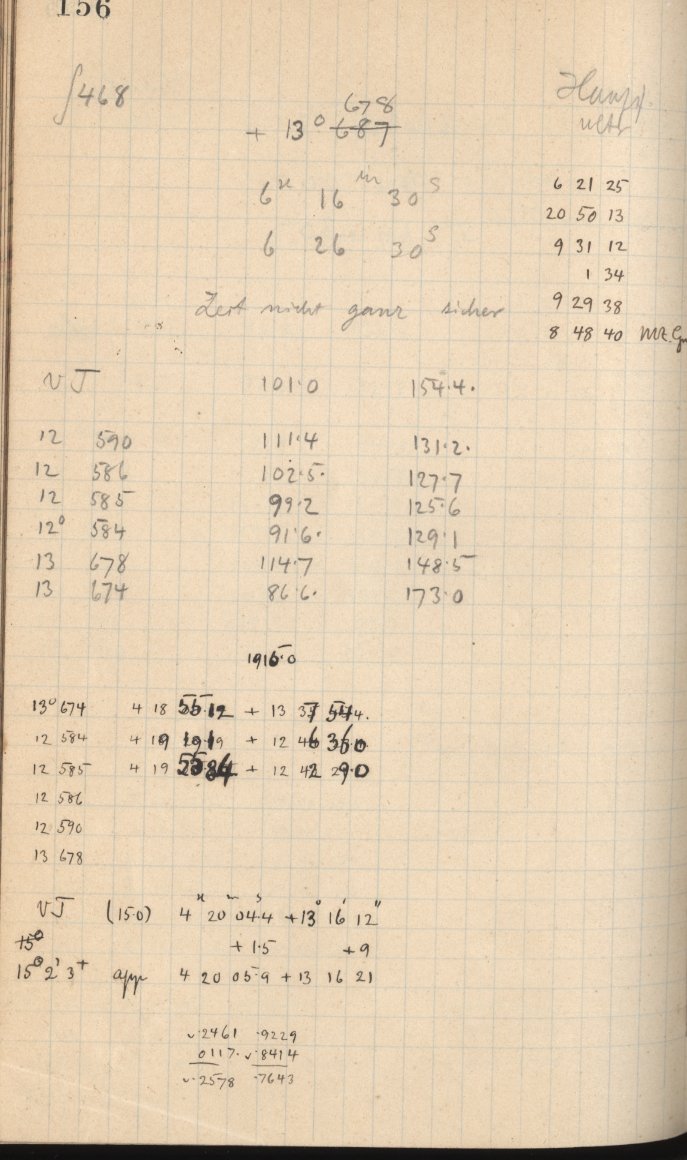 156
∫468
678
+ 13° 687
6 16 m 30 s
6 26 30 s
Zeit nicht ganz sicher
6 21 25
20 50 13
9 31 12
1 34
9 29 38
8 48 40
VJ 101.0 154.4.
12 590 111.4 131.2.
12 586 102.5. 127.7
12 585 99.2 125.6
12° 584 91.6. 129.1
13 678 114.7 148.5
13 674 86.6. 173.0
1915.0
13° 674 4 18 + 13
12 584 4 19 + 12
12 585 4 19 + 12
12 586
12 590
13 678
VJ (15.0) 4 20 m 04.4 s + 13° 16' 12"
+ 1.5 + 9
15° 2' 3+ app 4 20 05.9 + 13 16 21
.2461 .9229
0117. .8414
.2578 .7643